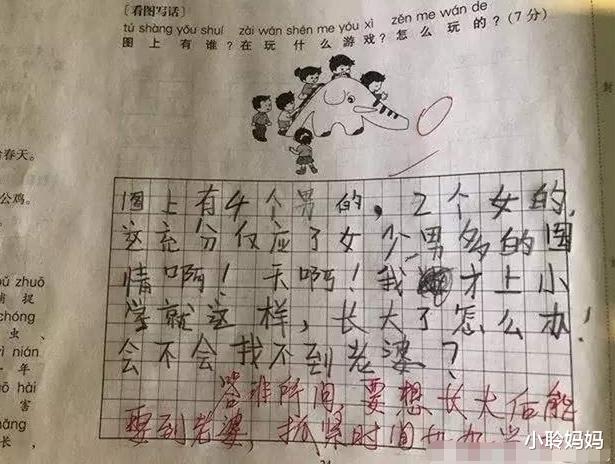 [看图写话]
tú shàng yǒu shuí zài wán shén me yóu xì zěn me wán de
图上有谁？在玩什么游戏？怎么玩的？(7分)
给春天。
公鸡。
捕捉
虫、
年
害
长，
图上有4个男的，2个女的，
这充分仅应了女少男多的国
情啊！天啊！我才上小
学就这样，长大了怎么办！
会不会找不到老婆？
答非所问 要想长大后能
娶到老婆，抓紧时间
小聆妈妈